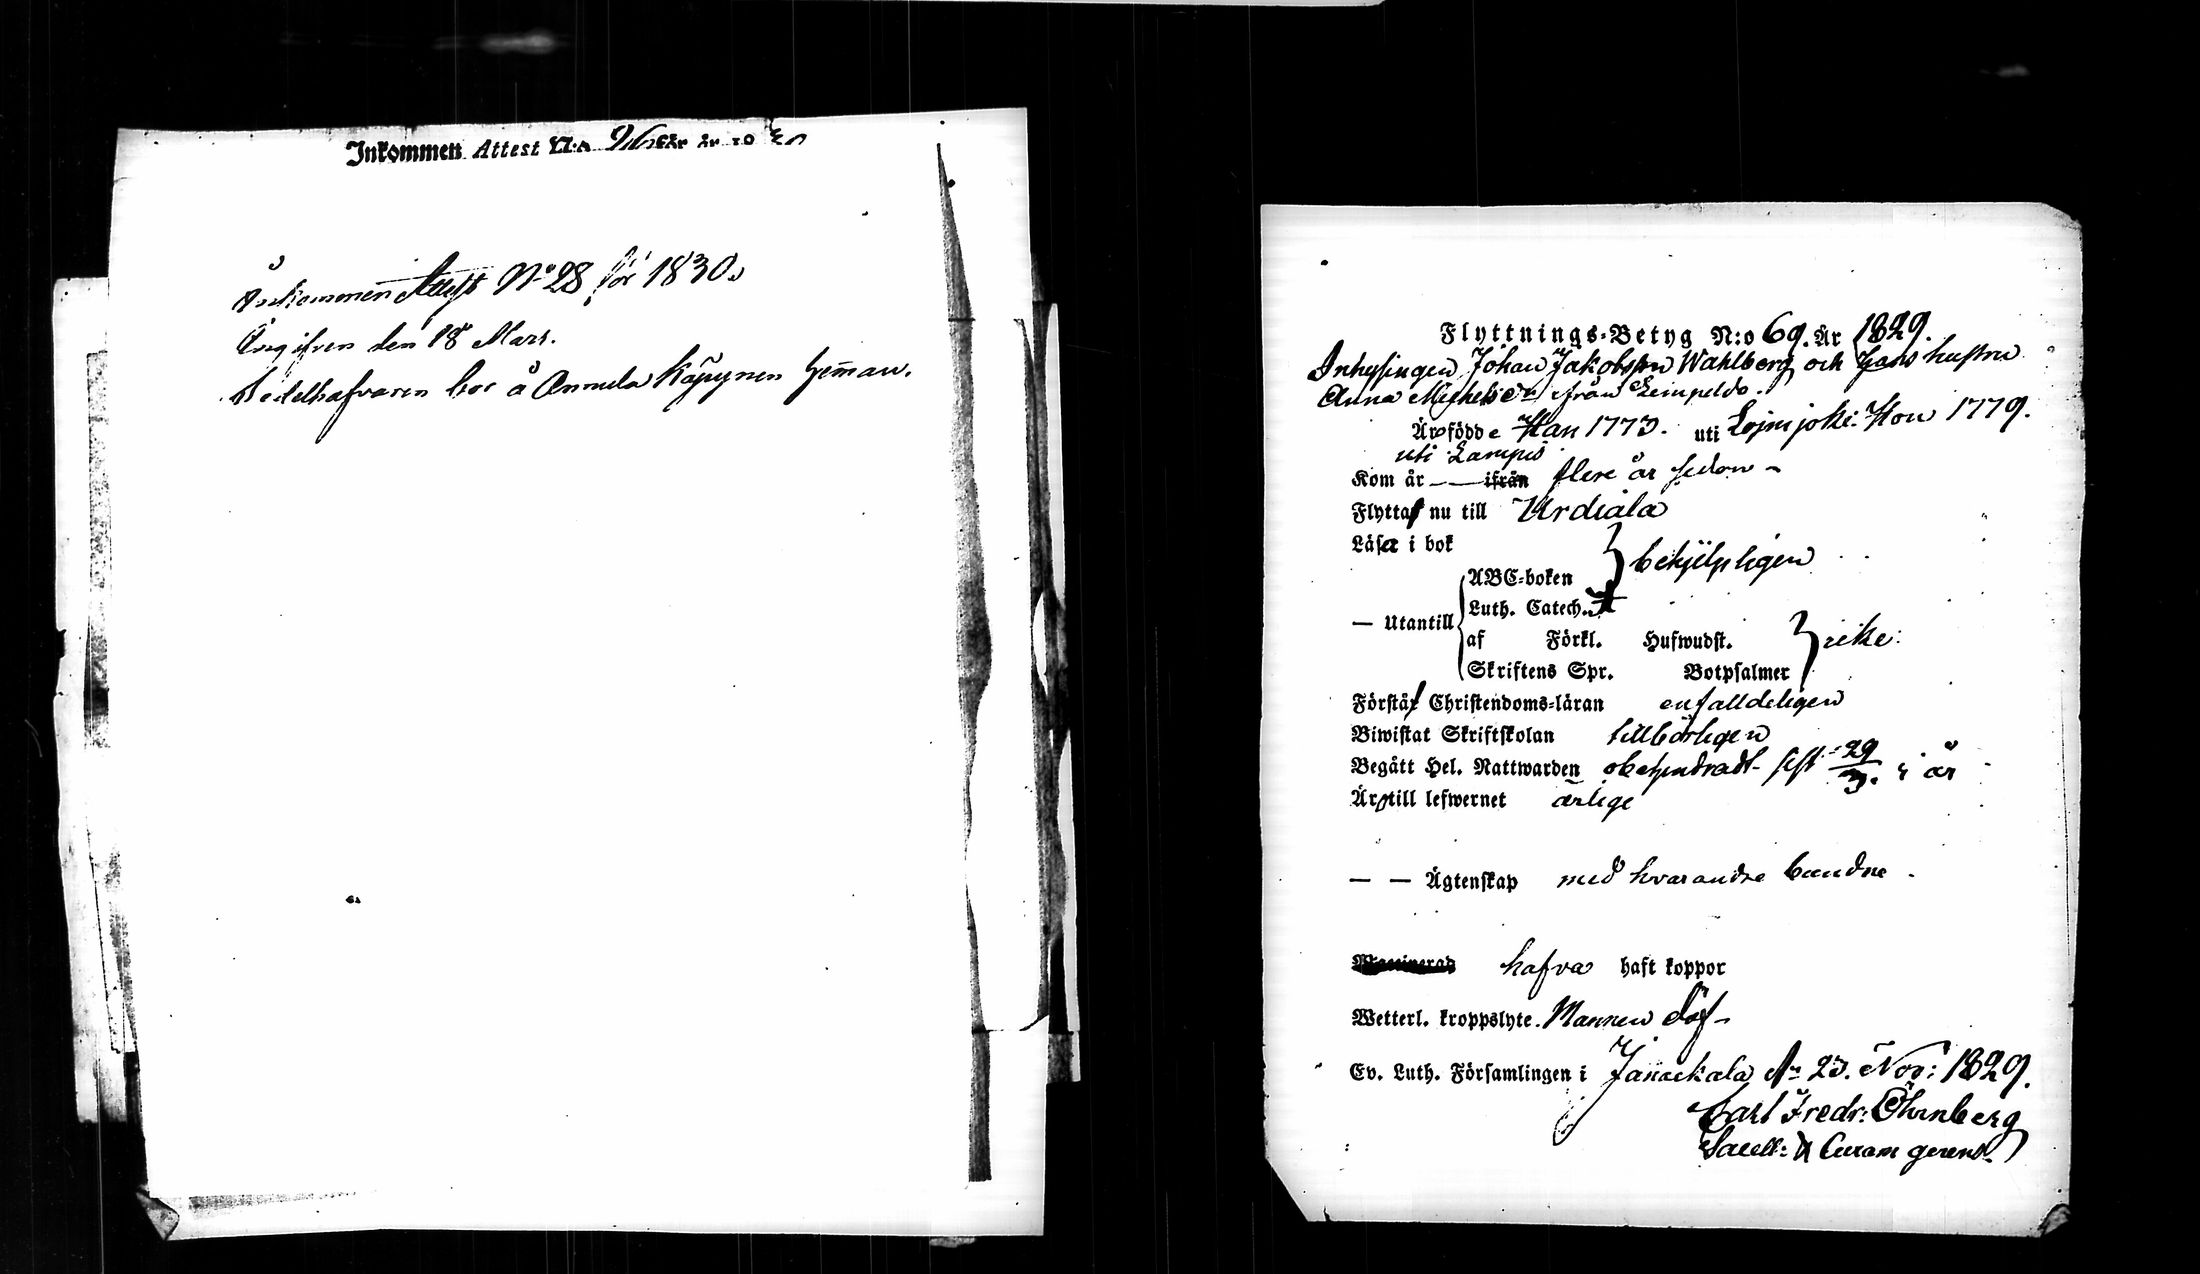 Inkommen Attest N:o 26 för år 18 30
Inkommen Attest No 28 för 1830.
Ingifven den 18 Mars.
Sedelhafvaren bor å Annula Käpynen hemman.
Flyttnings-Betyg N:o 69. År 1829.
Inhysingen Johan Jakobsson Wahlberg och hans hustru
Anna Michelsdr ifrån Leinpeldo.
Äro födde Han 1773. uti Lojmjoki: Hon 1779.
uti Lampis
Kom år — — ifrån flere år sedan —
Flytta nu till Urdiala
Läsa i bok
ABC-boken } behjelpligen
Luth. Catech.
— Utantill
af Förkl. Hufwudst. } icke:
Skriftens Spr. Botpsalmer
Förstå Christendoms-läran enfalldeligen
Biwistat Skriftskolan tillbörligen
Begått Hel. Nattwarden obehindradt sist 29/3. i år
Äro till lefwernet ärlige
— — Ägtenskap med hvarandra bundne.
Waccinerad hafva haft koppor
Wetterl. kroppslyte. Mannen döf —
Ev. Luth. Församlingen i Janackala, d. 23. Nov: 1829.
Carl Fredr: Öhrnberg
Sacell: & Curam gerens.